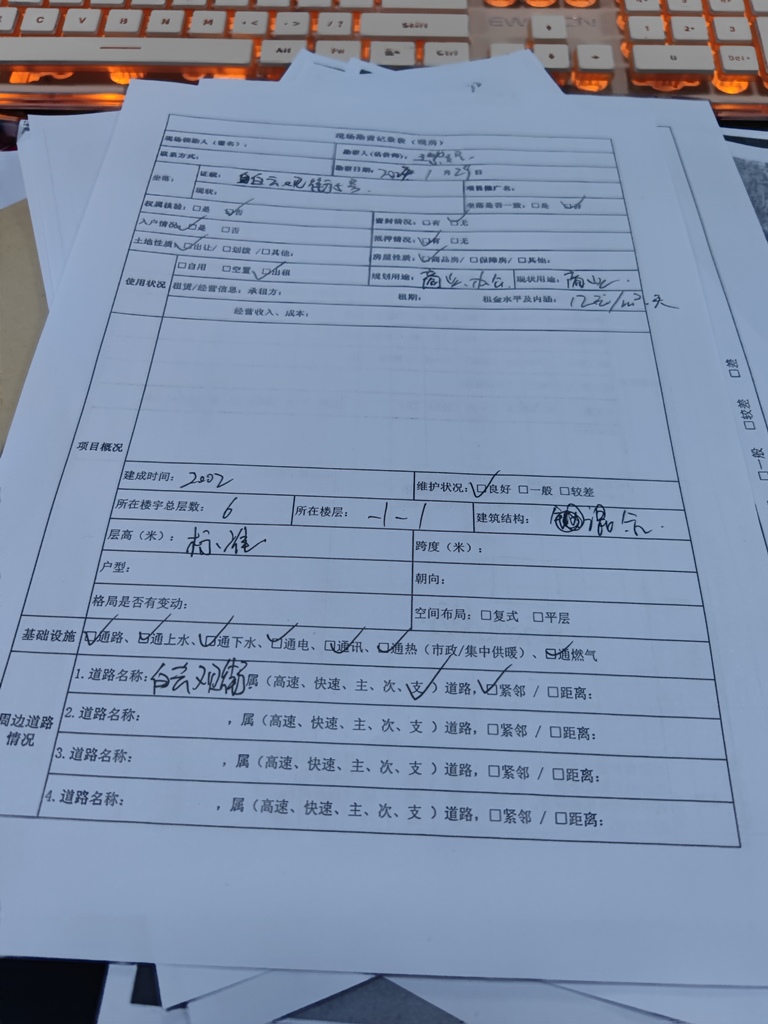 现场勘查记录表（现房）
现场领勘人（签名）：
勘察人(估价师)：
联系方式：
勘察日期：1 月 29 日
坐落：
证载：白云观街
现状：
坐落是否一致：□是 ☑否
权属核验：□是 ☑否
查封情况：□有 ☑无
入户情况：☑是 □否
抵押情况：☑有 □无
土地性质：☑出让/□划拨 /□其他：
房屋性质：☑商品房/□保障房/□其他：
使用状况
□自用 □空置 ☑出租
规划用途：商业、办公
现状用途：商业
租赁/经营信息：承租方： 租期： 租金水平及内涵：12元/m².天
经营收入、成本：
项目概况
建成时间：2002
维护状况：☑良好 □一般 □较差
所在楼宇总层数：6
所在楼层：-1-1
建筑结构：混合
层高（米）：标准
跨度（米）：
户型：
朝向：
格局是否有变动：
空间布局：□复式 □平层
基础设施
☑通路、☑通上水、☑通下水、☑通电、☑通讯、☑通热（市政/集中供暖）、☑通燃气
周边道路情况
1.道路名称：白云观街属（高速、快速、主、次、支✓）道路，☑紧邻 / □距离：
2.道路名称： ，属（高速、快速、主、次、支 ）道路，□紧邻 / □距离：
3.道路名称： ，属（高速、快速、主、次、支 ）道路，□紧邻 / □距离：
4.道路名称： ，属（高速、快速、主、次、支 ）道路，□紧邻 / □距离：
□差
□较差
□一般
C V B N M
Shift
Alt
Fn
Ctrl